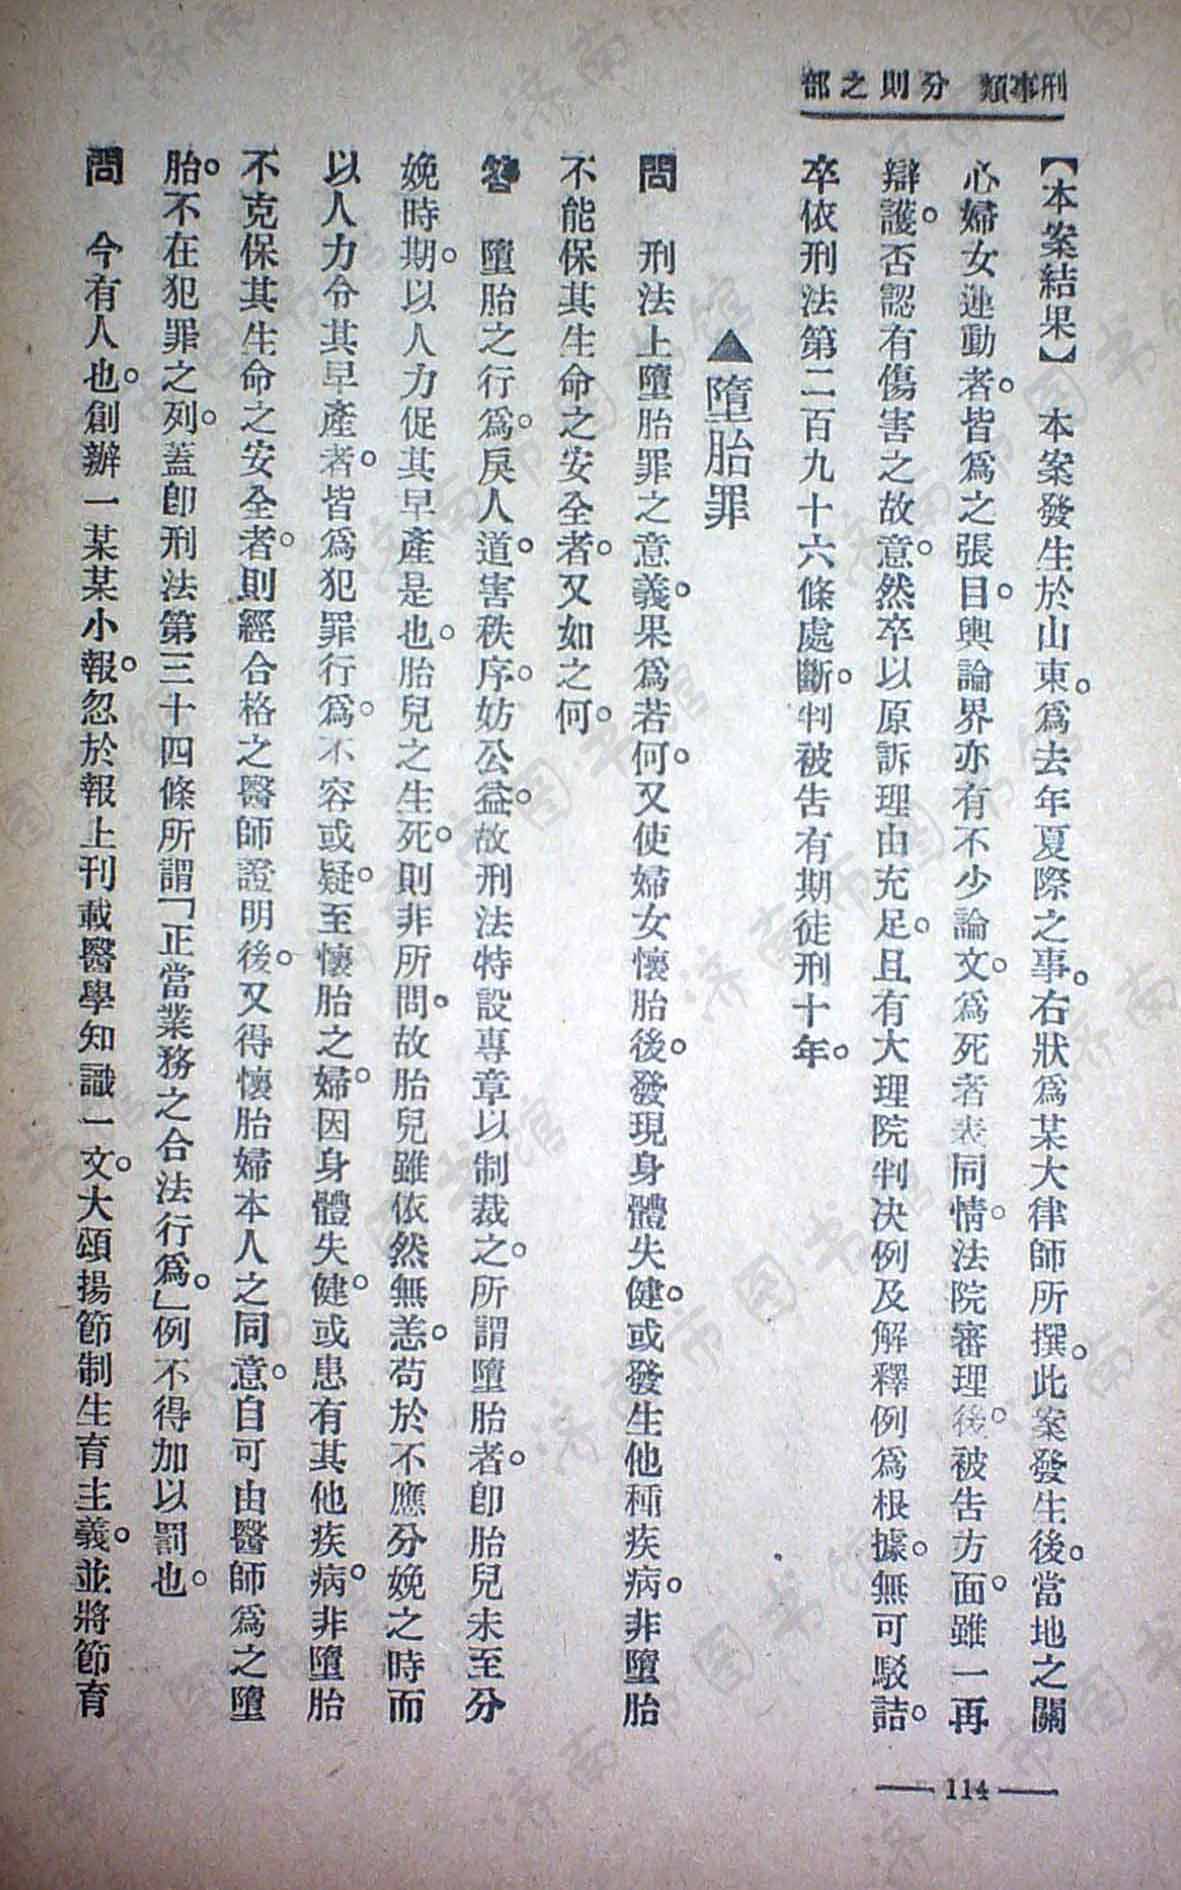 刑事類 分則之部
【本案結果】 本案發生於山東。爲去年夏際之事。右狀爲某大律師所撰。此案發生後。當地之關
心婦女運動者。皆爲之張目。輿論界亦有不少論文。爲死者表同情。法院審理後。被告方面。雖一再
辯護。否認有傷害之故意。然卒以原訴理由充足。且有大理院判决例及解釋例爲根據。無可駁詰。
卒依刑法第二百九十六條處斷。判被告有期徒刑十年。
▲墮胎罪
問 刑法上墮胎罪之意義。果爲若何。又使婦女懷胎後。發現身體失健。或發生他種疾病。非墮胎
不能保其生命之安全者。又如之何。
答 墮胎之行爲。戾人道。害秩序。妨公益。故刑法特設專章以制裁之。所謂墮胎者。卽胎兒未至分
娩時期。以人力促其早產是也。胎兒之生死。則非所問。故胎兒雖依然無恙。苟於不應分娩之時而
以人力令其早產者。皆爲犯罪行爲。不容或疑。至懷胎之婦。因身體失健。或患有其他疾病。非墮胎
不克保其生命之安全者。則經合格之醫師證明後。又得懷胎婦本人之同意。自可由醫師爲之墮
胎。不在犯罪之列。蓋卽刑法第三十四條所謂「正當業務之合法行爲。」例不得加以罰也。
問 今有人也。創辦一某某小報。忽於報上刊載醫學知識一文。大頌揚節制生育主義。並將節育
114
济南市图书馆